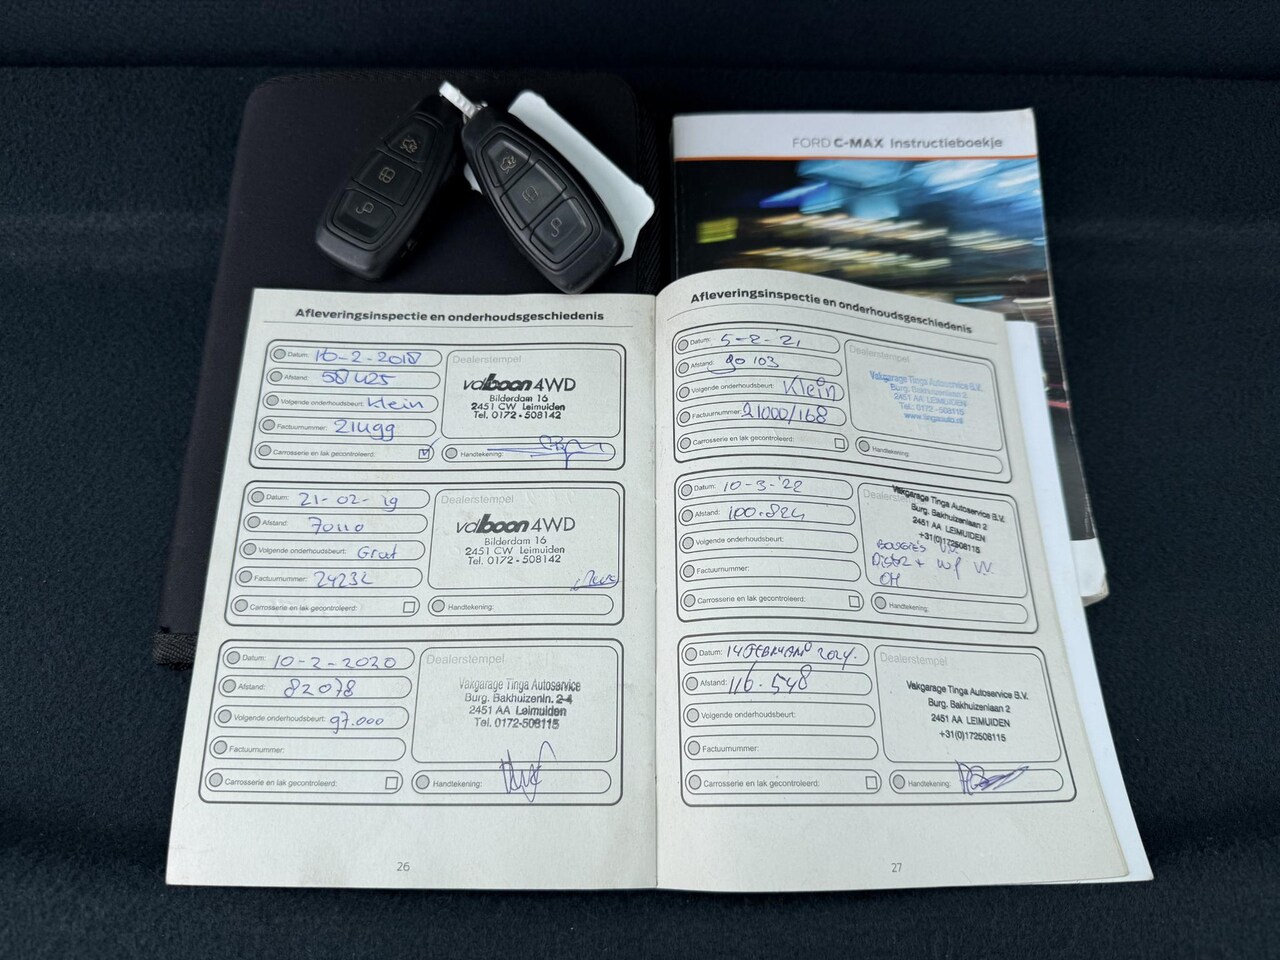 FORD C-MAX Instructieboekje
Afleveringsinspectie en onderhoudsgeschiedenis
Datum: 16-2-2018
Afstand: 58425
Volgende onderhoudsbeurt: Klein
Factuurnummer:
Carrosserie en lak gecontroleerd:
Dealerstempel
valboon 4WD
Bilderdam 16
2451 CW Leimuiden
Tel. 0172 - 508142
Handtekening:
Datum: 21-02-19
Afstand: 70110
Volgende onderhoudsbeurt: Groot
Factuurnummer: 24232
Carrosserie en lak gecontroleerd:
Dealerstempel
valboon 4WD
Bilderdam 16
2451 CW Leimuiden
Tel. 0172 - 508142
Handtekening:
Datum: 10-2-2020
Afstand: 82078
Volgende onderhoudsbeurt: 97.000
Factuurnummer:
Carrosserie en lak gecontroleerd:
Dealerstempel
Vakgarage Tinga Autoservice
Burg. Bakhuizenln. 2-4
2451 AA Leimuiden
Tel. 0172-508115
Handtekening:
26
Afleveringsinspectie en onderhoudsgeschiedenis
Datum: 5-2-'21
Afstand: 90103
Volgende onderhoudsbeurt: Klein
Factuurnummer: 21000/168
Carrosserie en lak gecontroleerd:
Dealerstempel
Vakgarage Tinga Autoservice B.V.
Burg. Bakhuizenlaan 2
2451 AA LEIMUIDEN
Tel.: 0172 - 508115
www.tingaauto.nl
Handtekening:
Datum: 10-3-'22
Afstand: 100.824
Volgende onderhoudsbeurt:
Factuurnummer:
Carrosserie en lak gecontroleerd:
Vakgarage Tinga Autoservice B.V.
Burg. Bakhuizenlaan 2
2451 AA LEIMUIDEN
+31(0)172508115
Handtekening:
Datum: 14 FEBRUARI 2024.
Afstand: 116.548
Volgende onderhoudsbeurt:
Factuurnummer:
Carrosserie en lak gecontroleerd:
Dealerstempel
Vakgarage Tinga Autoservice B.V.
Burg. Bakhuizenlaan 2
2451 AA LEIMUIDEN
+31(0)172508115
Handtekening:
27